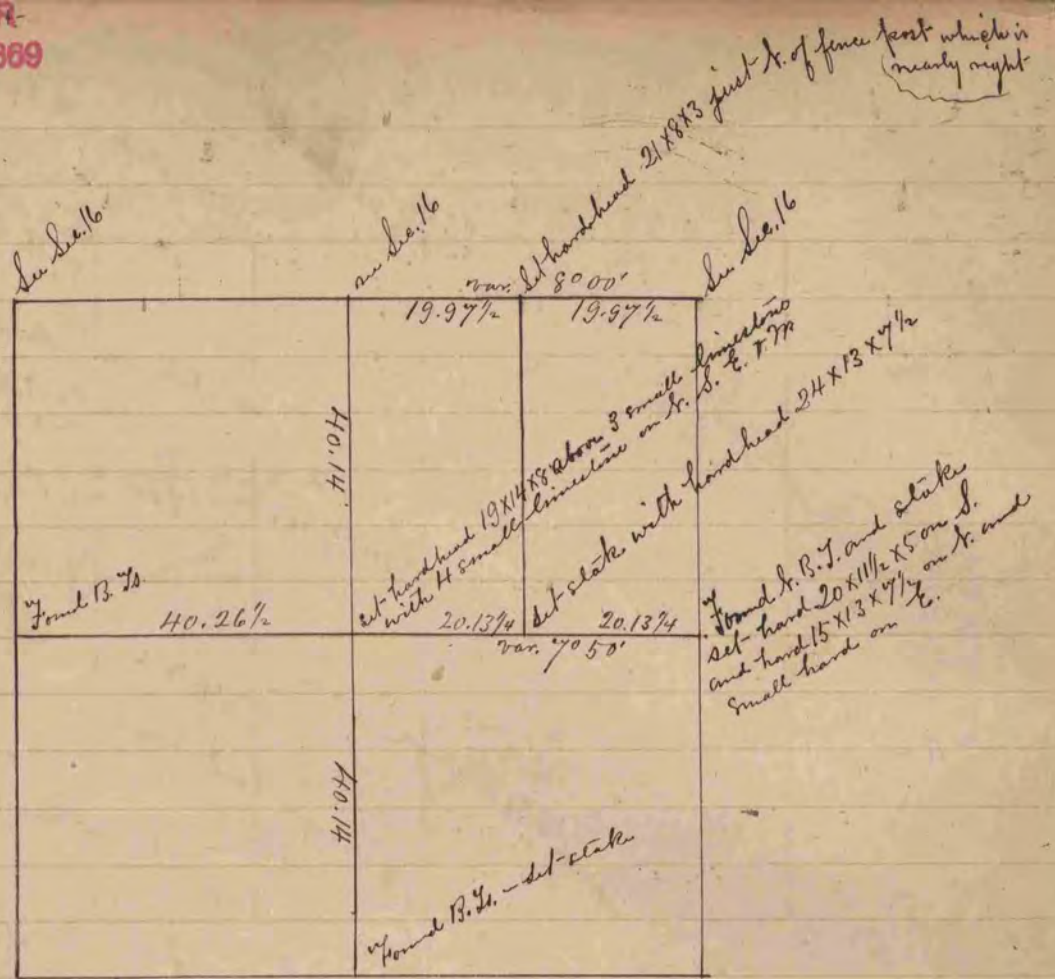 R
669
See Sec. 16
see Sec. 16
Set hardhead 21X8X3 just N. of fence post which is
nearly right
See Sec. 16
var. 8°00'
19.97½
19.97½
40.14
set hardhead 19X14X8 above 3 small limestone
with 4 small limestone on N. S. E. & W
Set stake with hardhead 24X13X7½
Found B.Ts.
40.26½
20.13¼
20.13¼
var. 7°50'
Found N. B.T. and stake
set hard 20X11½X5 on S.
and hard 15X13X7½ on N. and
small hard on E.
40.14
Found B.Ts. - set stake